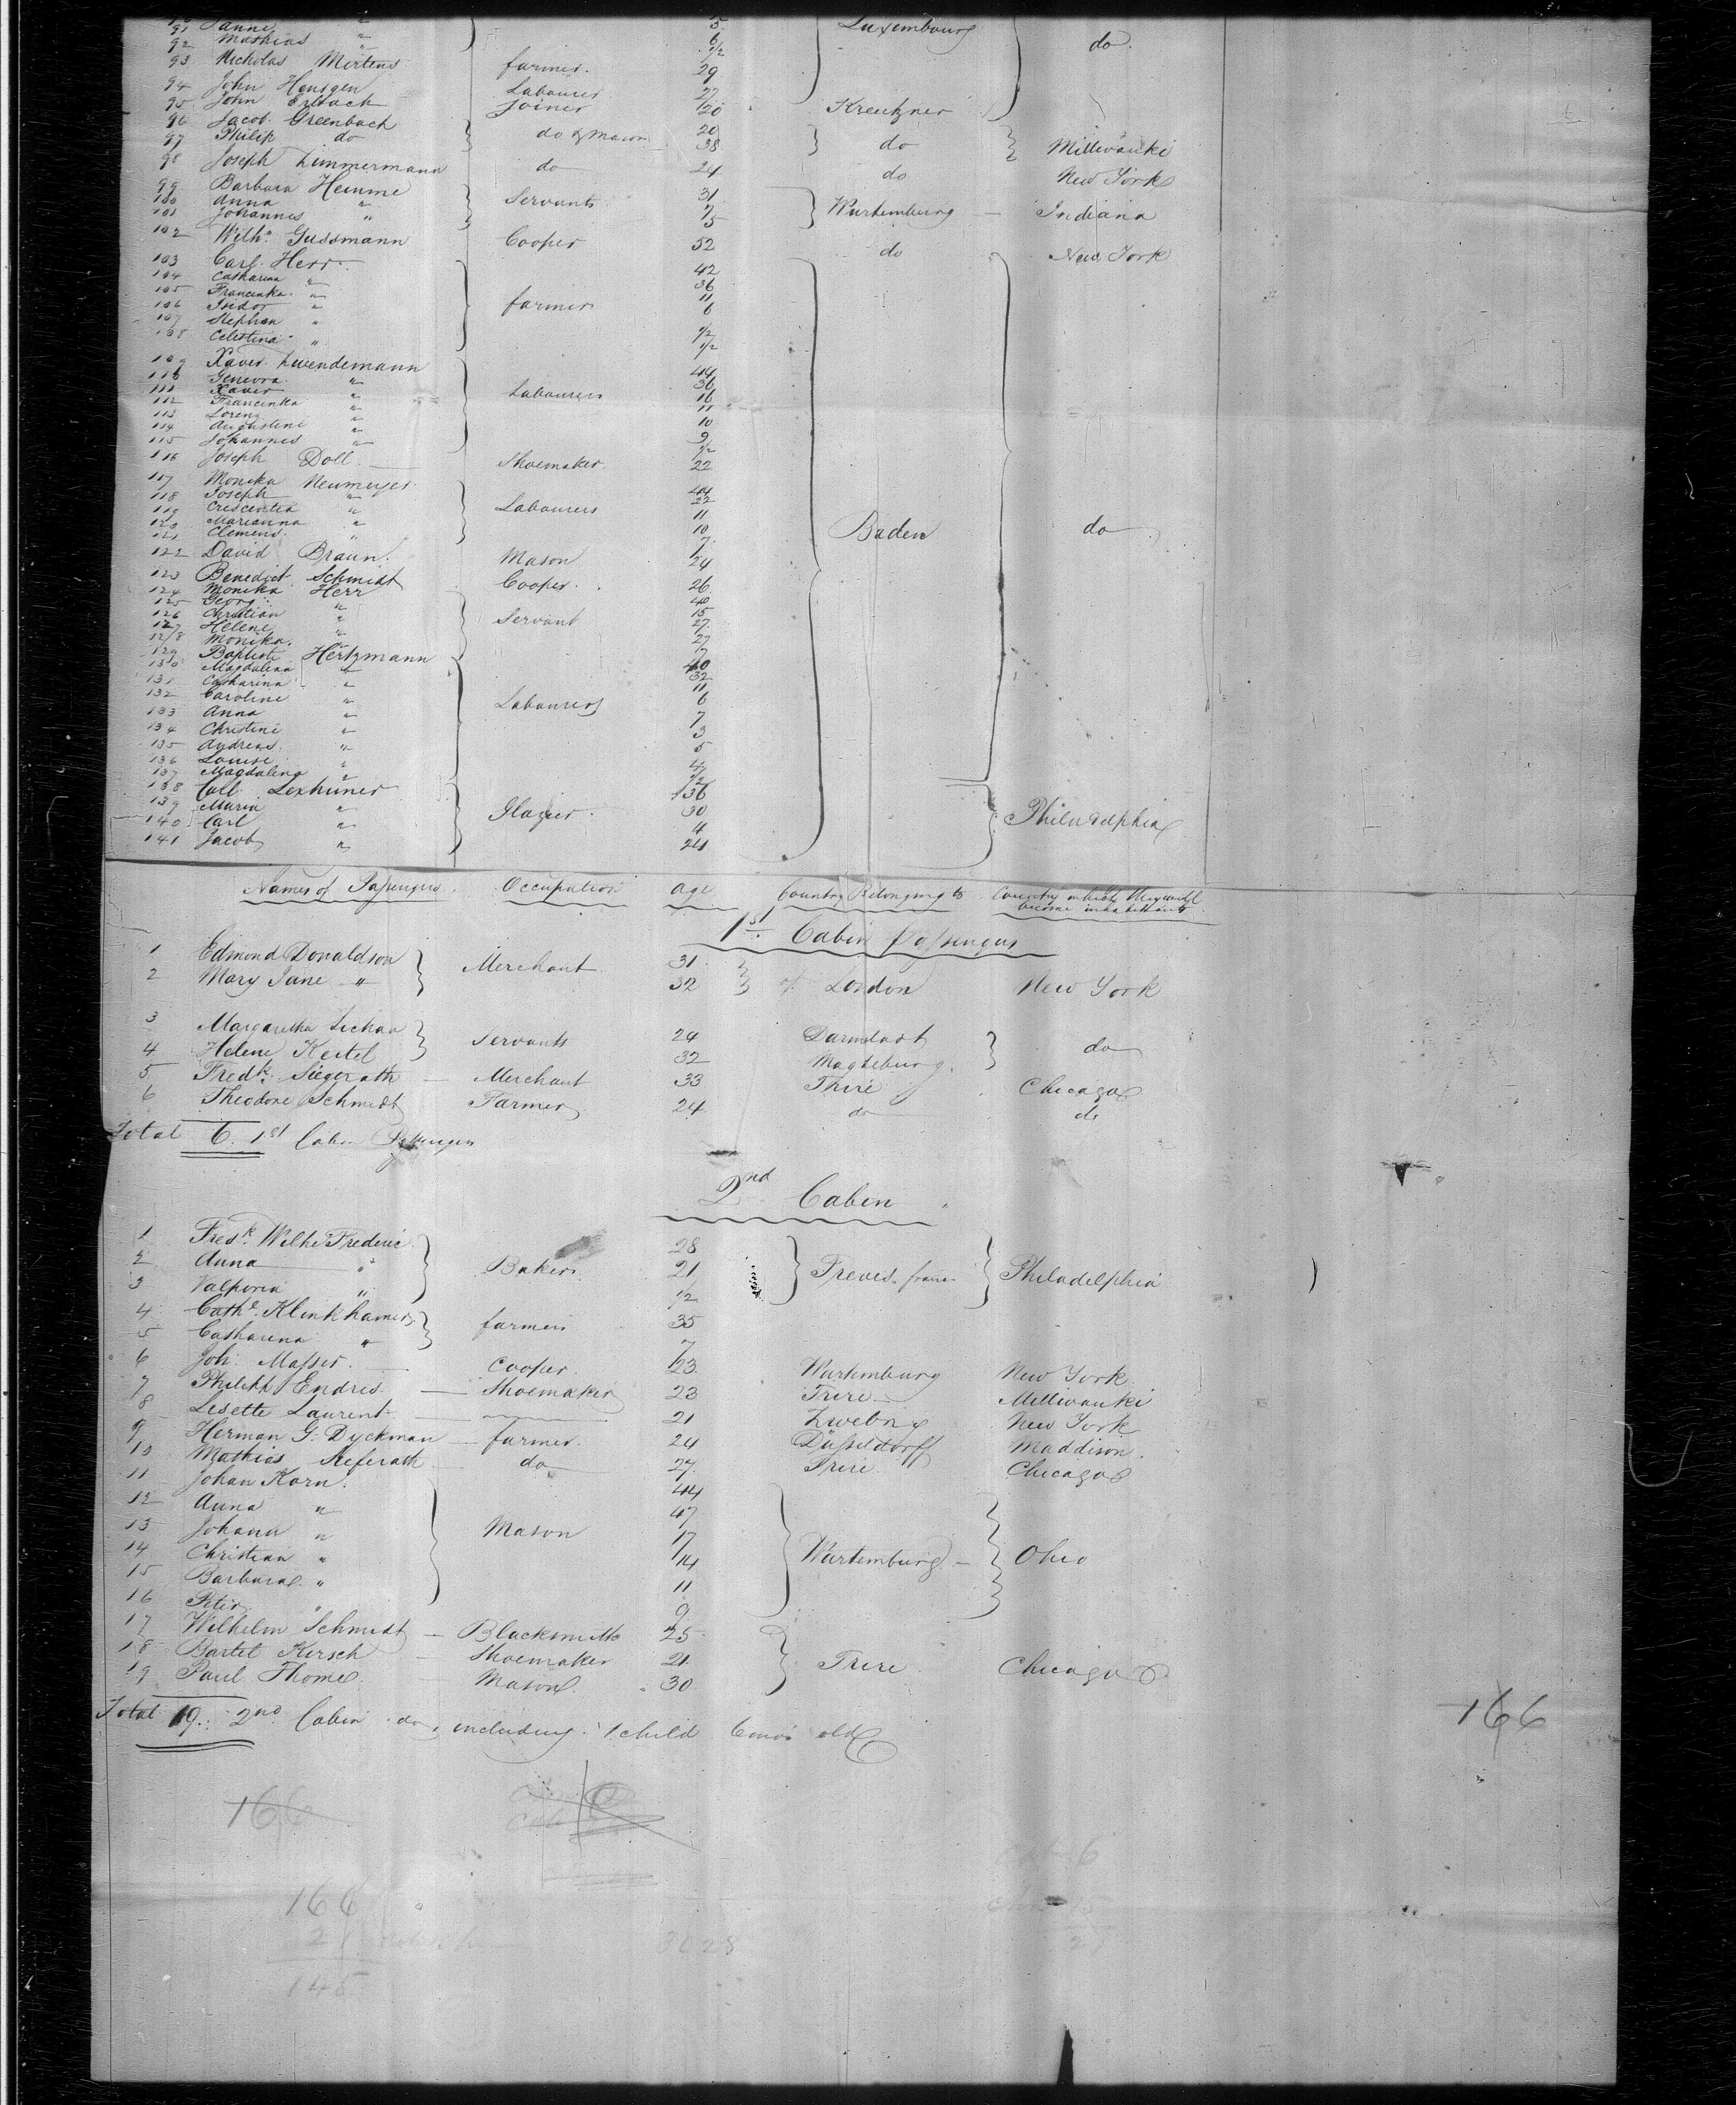 91 " 5 Luxembourg
92 Mathias " 6 do
93 Nicholas Mertens farmer. 29
94 John Hensgen Labourer 27
95 John Erbach Joiner 20 Kreutzner
96 Jacob Greenbach do & mason 20 do Milliwauki
97 Philip do 38
98 Joseph Zimmermann do 24 do New York
99 Barbara Hemme Servants 31 Wurtemburg Indiana
100 Anna " 7
101 Johannes " 5
102 Wilhm Gussmann Cooper 52 do New York
103 Carl Herr 42
104 Catharina " 36
105 Francinka " farmer 11
106 Isidor " 6
107 Stephan "
108 Celestina " 1/2
109 Xaver Zwendemann 44
110 Genevra " 36
111 Xaver " Labourers 16
112 Francinka " 11
113 Lorenz " 10
114 Augustine " 9
115 Johannes " 1/2
116 Joseph Doll Shoemaker 22
117 Monika Neumeyer 44
118 Joseph " 22
119 Crescentia " Labourers 11
120 Marianna " 10 Baden do
121 Clemens " 7
122 David Braun Mason 24
123 Benedict Schmidt Cooper 26
124 Monika Herr 40
125 Georg " 15
126 Christian " Servant 27
127 Helene " 27
128 Monika " 7
129 Baptiste Hertzmann 40
130 Magdalena " 32
131 Catharina " 11
132 Caroline " Labourers 6
133 Anna " 7
134 Christine " 3
135 Andreas " 5
136 Louise " 4
137 Magdalena " 1/2
138 Carl Lexhuner 36
139 Maria " Glazier 30 Philadelphia
140 Carl " 4
141 Jacob " 24
Names of Passengers. Occupation age Country Belonging to Country in which they will become inhabitants
1st Cabin Passengers
1 Edmond Donaldson Merchant 31 London New York
2 Mary Jane " 32
3 Margaretha Lichaa Servants 24 Darmstadt do
4 Helene Kestel 32 Magdeburg
5 Fredk. Siegerath Merchant 33 Trire Chicago
6 Theodore Schmidt Farmer 24 do do
Total 6. 1st Cabin Passengers
2nd Cabin
1 Fredk. Wilhe Frederic 28
2 Anna " Bakers 21 Treves Philadelphia
3 Valporia " 1/2
4 Cathe. Klinkhamer farmers 35
5 Catharina " 7
6 Joh. Masser Cooper 23 Wurtemburg New York
7 Philipp Endres Shoemaker 23 Trire Milliwauki
8 Lesette Laurent 21 New York
9 Herman G. Dyckman farmer 24 Düsseldorff Maddison
10 Mathias Referath do 27 Trire Chicago
11 Johan Korn 44
12 Anna " 47
13 Johann " Mason 17
14 Christian " 14 Wurtemburg Ohio
15 Barbara " 11
16 Peter " 9
17 Wilhelm Schmidt Blacksmith 25
18 Bartel Kirsch Shoemaker 21 Trire Chicago
19 Paul Thome Mason 30
Total 19. 2nd Cabin do, including 1 child 6 mos old
166
166
166
21
145
3028
6
15
21